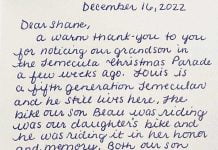 December 16, 2022
Dear Shane,
a warm thank-you to you
for noticing our grandson
in the Temecula Christmas Parade
a few weeks ago. Louis is
a fifth generation Temeculan
and he still lives here. The
bike our son Beau was riding
was our daughter's bike and
he was riding it in her honor
and memory. Both our son